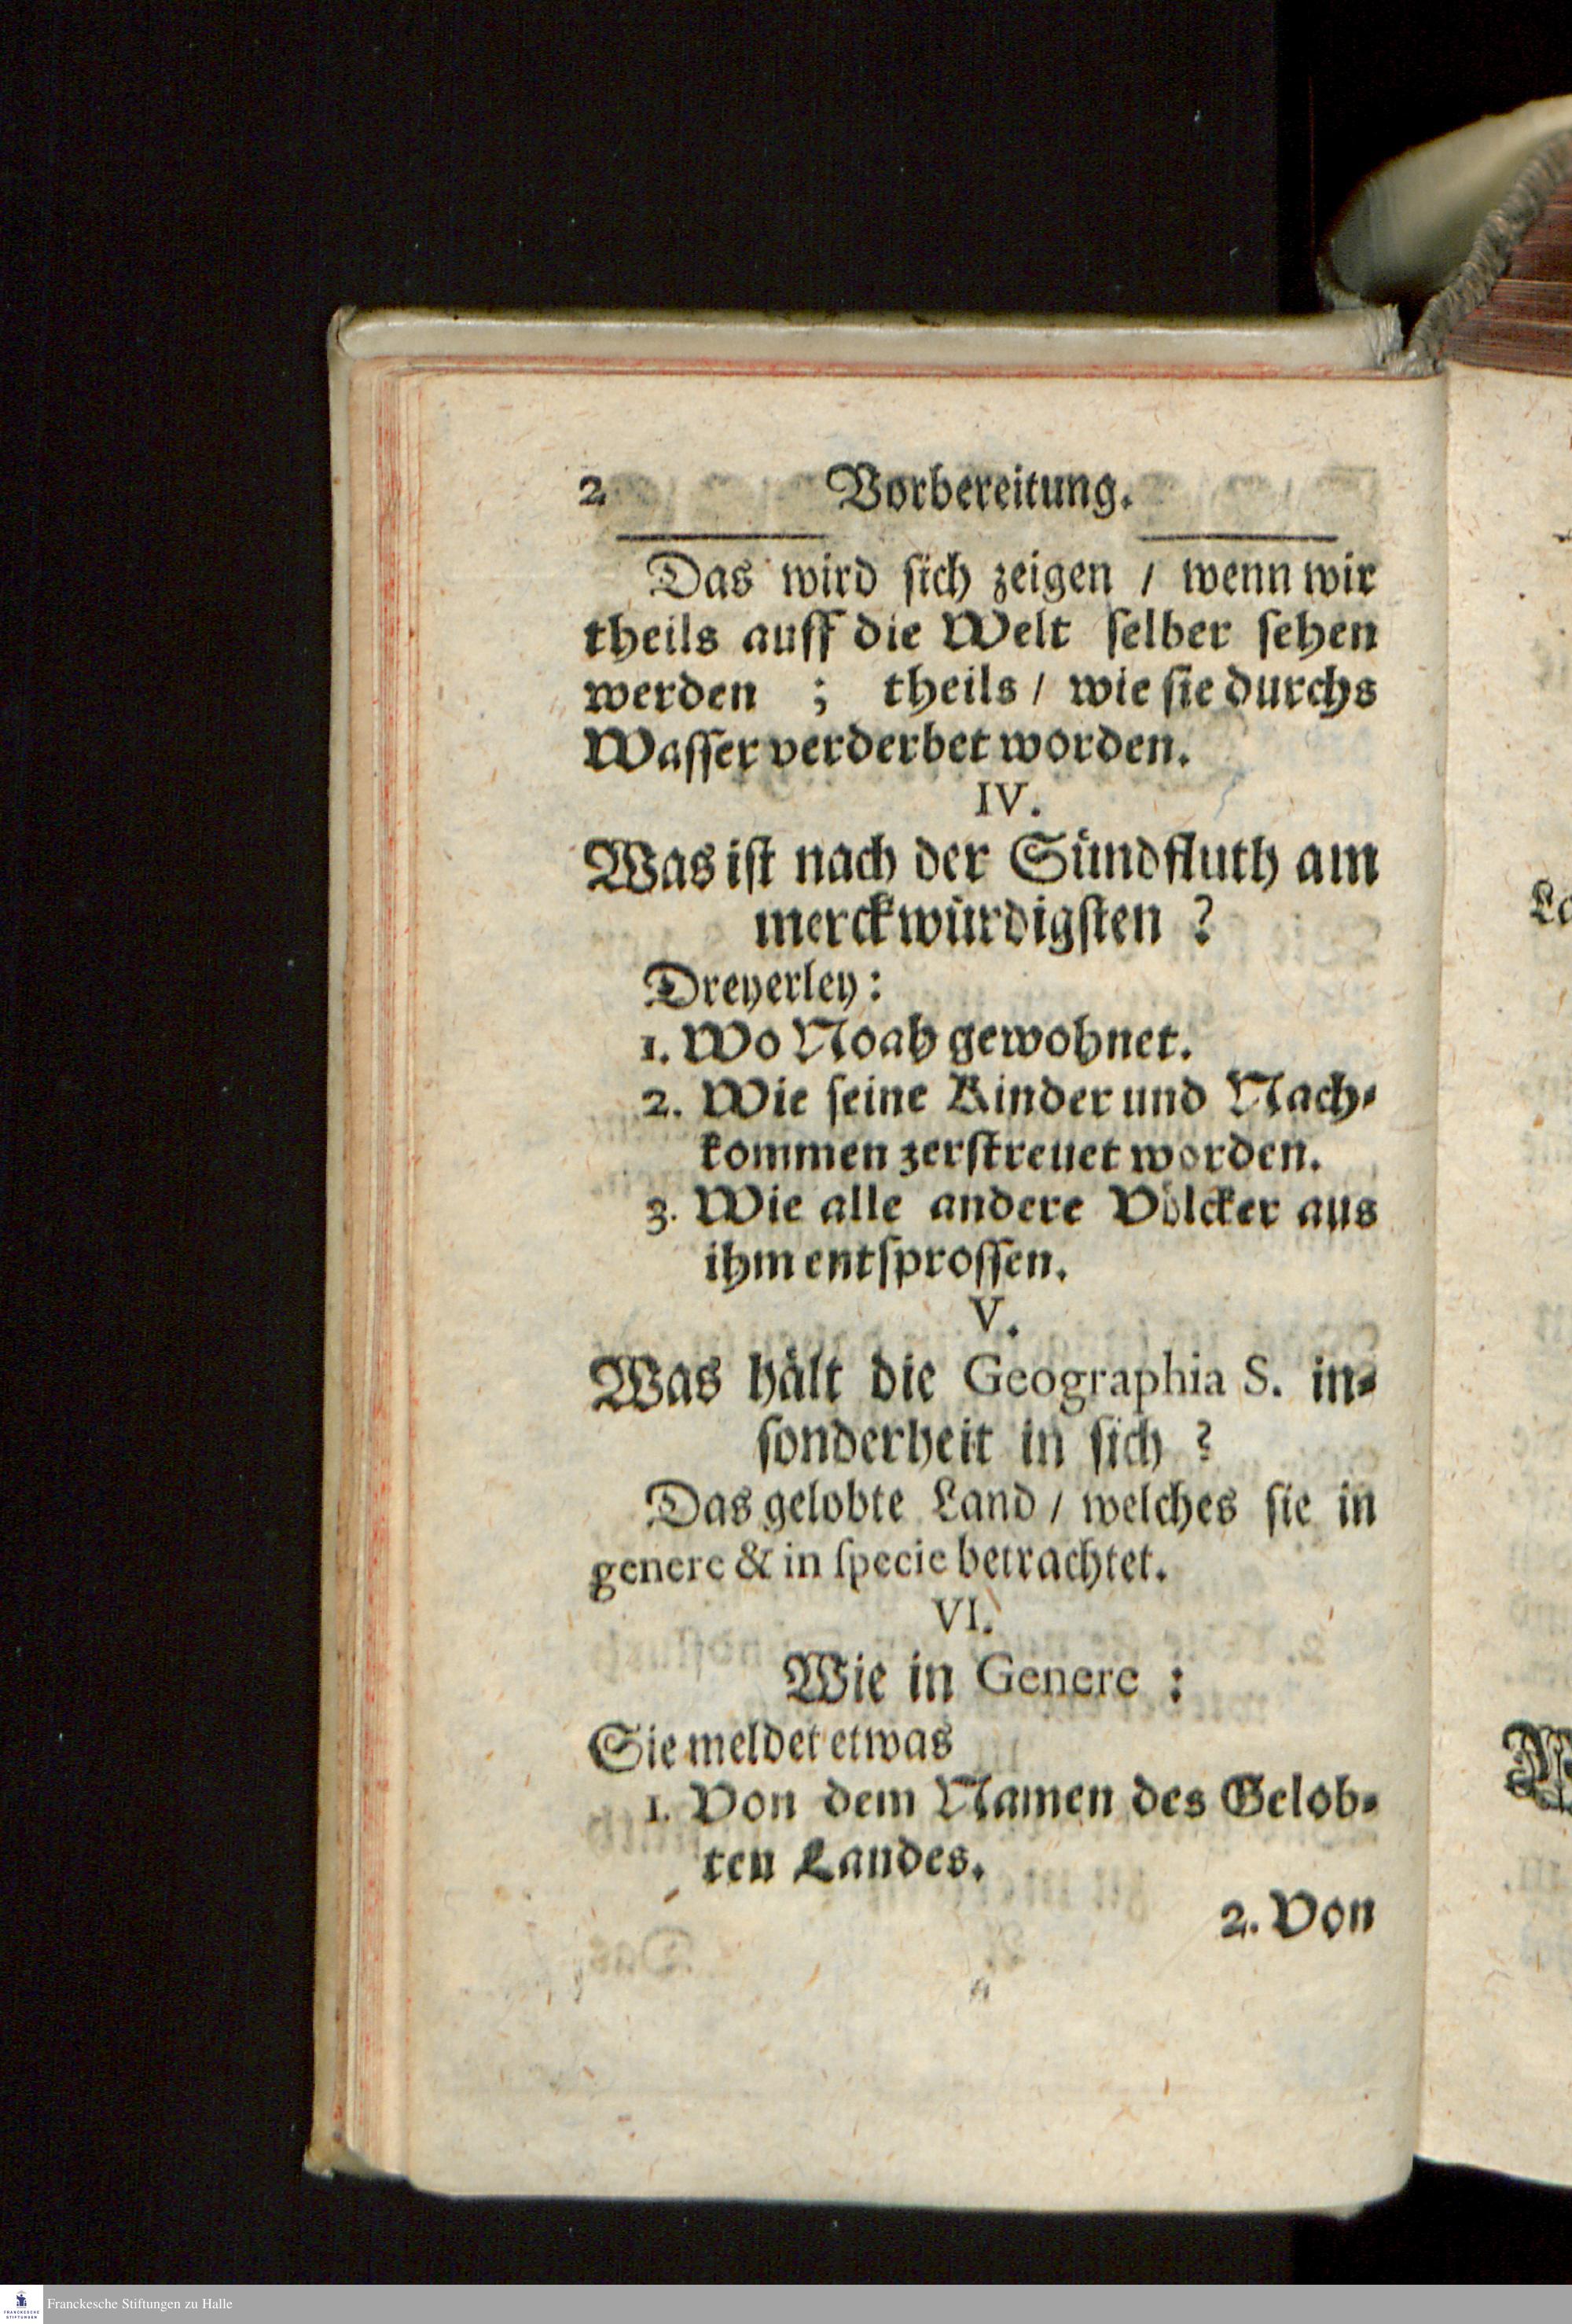 2 Vorbereitung.
Das wird ſich zeigen / wenn wir
theils auff die Welt ſelber ſehen
werden ; theils / wie ſie durchs
Waſſer verderbet worden.
IV.
Was iſt nach der Sündfluth am
merckwürdigſten ?
Dreyerley:
1. Wo Noah gewohnet.
2. Wie ſeine Kinder und Nach-
kommen zerſtreuet worden.
3. Wie alle andere Völcker aus
ihm entſproſſen.
V.
Was hält die Geographia S. in-
ſonderheit in ſich ?
Das gelobte Land / welches ſie in
genere & in ſpecie betrachtet.
VI.
Wie in Genere :
Sie meldet etwas
1. Von dem Namen des Gelob-
ten Landes.
2. Von
Franckesche Stiftungen zu Halle
FRANCKESCHE
STIFTUNGEN